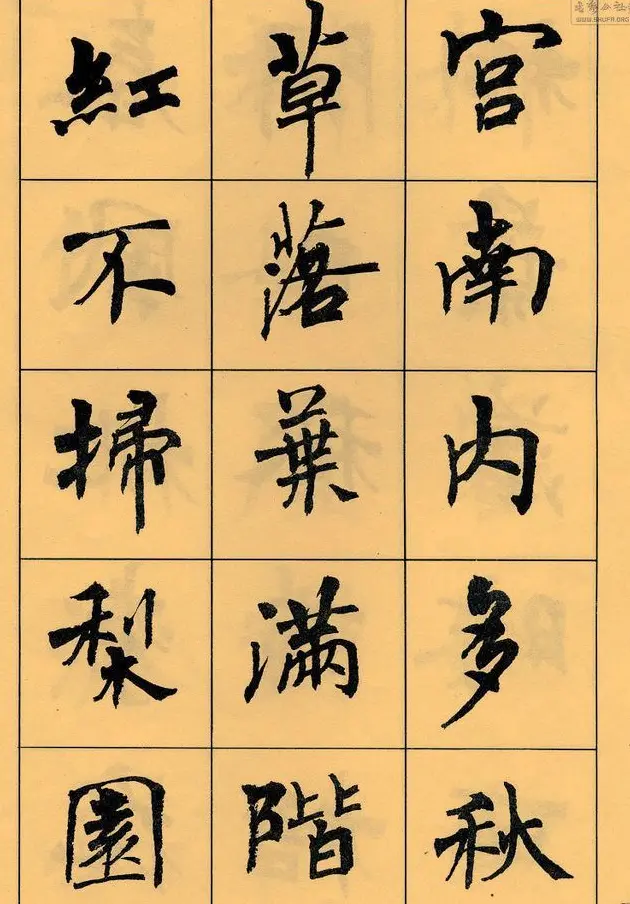 宮南內多秋
草落葉滿階
紅不掃梨園
WWW.SHUFA.ORG